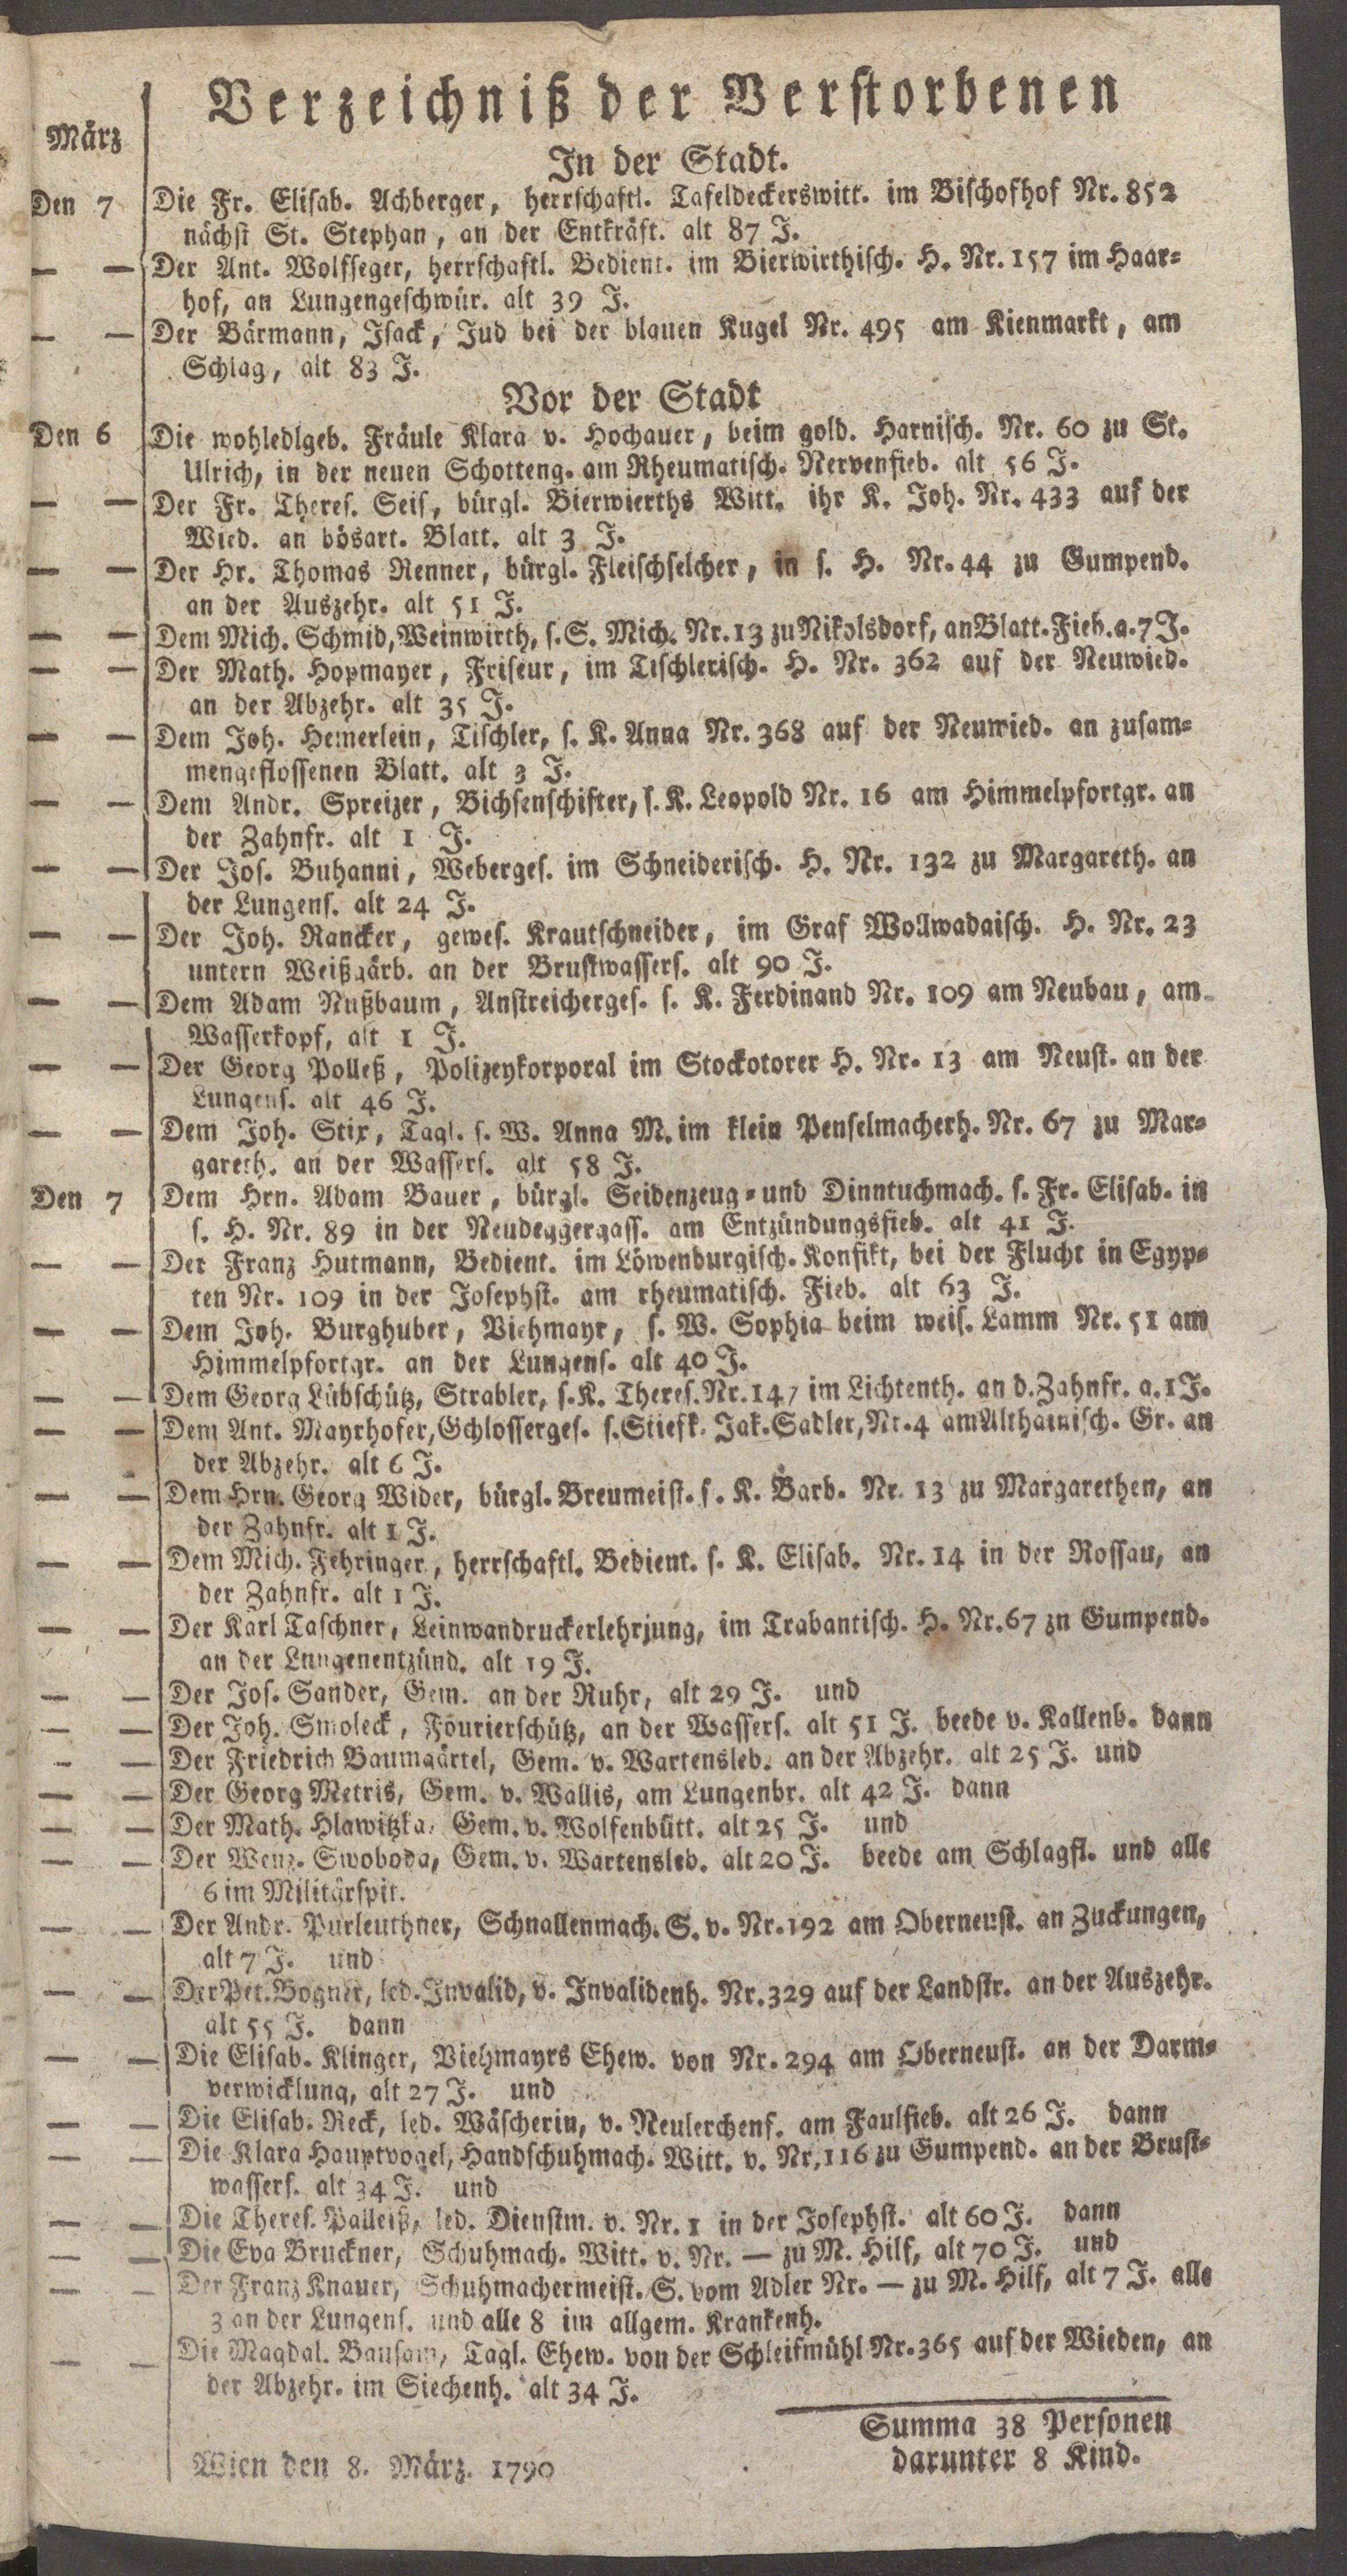 Verzeichniß der Verstorbenen
März
In der Stadt.
Den 7 Die Fr. Elisab. Achberger, herrschaftl. Tafeldeckerswitt. im Bischofhof Nr. 852
nächst St. Stephan, an der Entkräft. alt 87 J.
— — Der Ant. Wolfseger, herrschaftl. Bedient. im Bierwirthisch. H. Nr. 157 im Haar=
hof, an Lungengeschwür. alt 39 J.
— — Der Bärmann, Isack, Jud bei der blauen Kugel Nr. 495 am Kienmarkt, am
Schlag, alt 83 J.
Vor der Stadt
Den 6 Die wohledlgeb. Fräule Klara v. Hochauer, beim gold. Harnisch. Nr. 60 zu St.
Ulrich, in der neuen Schotteng. am Rheumatisch. Nervenfieb. alt 56 J.
— — Der Fr. Theres. Seis, bürgl. Bierwierths Witt. ihr K. Joh. Nr. 433 auf der
Wied. an bösart. Blatt. alt 3 J.
— — Der Hr. Thomas Renner, bürgl. Fleischselcher, in s. H. Nr. 44 zu Gumpend.
an der Auszehr. alt 51 J.
— — Dem Mich. Schmid, Weinwirth, s. S. Mich. Nr. 13 zu Nikolsdorf, an Blatt. Fieb. a. 7 J.
— — Der Math. Hopmayer, Friseur, im Tischlerisch. H. Nr. 362 auf der Neuwied.
an der Abzehr. alt 35 J.
— — Dem Joh. Hemerlein, Tischler, s. K. Anna Nr. 368 auf der Neuwied. an zusam=
mengeflossenen Blatt. alt 3 J.
— — Dem Andr. Spreizer, Bichsenschifter, s. K. Leopold Nr. 16 am Himmelpfortgr. an
der Zahnfr. alt 1 J.
— — Der Jos. Buhanni, Weberges. im Schneiderisch. H. Nr. 132 zu Margareth. an
der Lungens. alt 24 J.
— — Der Joh. Rancker, gewes. Krautschneider, im Graf Wollwadaisch. H. Nr. 23
untern Weißgärb. an der Brustwassers. alt 90 J.
— — Dem Adam Nußbaum, Anstreicherges. s. K. Ferdinand Nr. 109 am Neubau, am
Wasserkopf, alt 1 J.
— — Der Georg Polleß, Polizeykorporal im Stockotorer H. Nr. 13 am Neust. an der
Lungens. alt 46 J.
— — Dem Joh. Stix, Tagl. s. W. Anna M. im klein Penselmacherh. Nr. 67 zu Mar=
gareth. an der Wassers. alt 58 J.
Den 7 Dem Hrn. Adam Bauer, bürgl. Seidenzeug= und Dinntuchmach. s. Fr. Elisab. in
s. H. Nr. 89 in der Neudeggergass. am Entzündungsfieb. alt 41 J.
— — Der Franz Hutmann, Bedient. im Löwenburgisch. Konfikt, bei der Flucht in Egyp=
ten Nr. 109 in der Josephst. am rheumatisch. Fieb. alt 63 J.
— — Dem Joh. Burghuber, Viehmayr, s. W. Sophia beim weis. Lamm Nr. 51 am
Himmelpfortgr. an der Lungens. alt 40 J.
— — Dem Georg Lübschütz, Strabler, s. K. Theres. Nr. 147 im Lichtenth. an d. Zahnfr. a. 1 J.
— — Dem Ant. Mayrhofer, Gchlosserges. s. Stiefk. Jak. Sadler, Nr. 4 am Althainisch. Gr. an
der Abzehr. alt 6 J.
— — Dem Hrn. Georg Wider, bürgl. Breumeist. s. K. Barb. Nr. 13 zu Margarethen, an
der Zahnfr. alt 1 J.
— — Dem Mich. Fehringer, herrschaftl. Bedient. s. K. Elisab. Nr. 14 in der Rossau, an
der Zahnfr. alt 1 J.
— — Der Karl Taschner, Leinwandruckerlehrjung, im Trabantisch. H. Nr. 67 zn Gumpend.
an der Lungenentzünd. alt 19 J.
— — Der Jos. Sander, Gem. an der Ruhr, alt 29 J. und
— — Der Joh. Smoleck, Fourierschütz, an der Wassers. alt 51 J. beede v. Kallenb. dann
— — Der Friedrich Baumgärtel, Gem. v. Wartensleb. an der Abzehr. alt 25 J. und
— — Der Georg Metris, Gem. v. Wallis, am Lungenbr. alt 42 J. dann
— — Der Math. Hlawitzka, Gem. v. Wolfenbütt. alt 25 J. und
— — Der Wenz. Swoboda, Gem. v. Wartensleb. alt 20 J. beede am Schlagfl. und alle
6 im Militärspit.
— — Der Andr. Purleuthner, Schnallenmach. S. v. Nr. 192 am Oberneust. an Zuckungen,
alt 7 J. und
— — Der Pet. Bogner, led. Invalid, v. Invalidenh. Nr. 329 auf der Landstr. an der Auszehr.
alt 55 J. dann
— — Die Elisab. Klinger, Viehmayrs Ehew. von Nr. 294 am Oberneust. an der Darm=
verwicklung, alt 27 J. und
— — Die Elisab. Reck, led. Wäscherin, v. Neulerchenf. am Faulfieb. alt 26 J. dann
— — Die Klara Hauptvogel, Handschuhmach. Witt. v. Nr. 116 zu Gumpend. an der Brust=
wassers. alt 34 J. und
— — Die Theres. Palleiß, led. Dienstm. v. Nr. 1 in der Josephst. alt 60 J. dann
— — Die Eva Bruckner, Schuhmach. Witt. v. Nr. — zu M. Hilf, alt 70 J. und
— — Der Franz Knauer, Schuhmachermeist. S. vom Adler Nr. — zu M. Hilf, alt 7 J. alle
3 an der Lungens. und alle 8 im allgem. Krankenh.
— — Die Magdal. Bausam, Tagl. Ehew. von der Schleifmühl Nr. 365 auf der Wieden, an
der Abzehr. im Siechenh. alt 34 J.
Summa 38 Personen
darunter 8 Kind.
Wien den 8. März. 1790